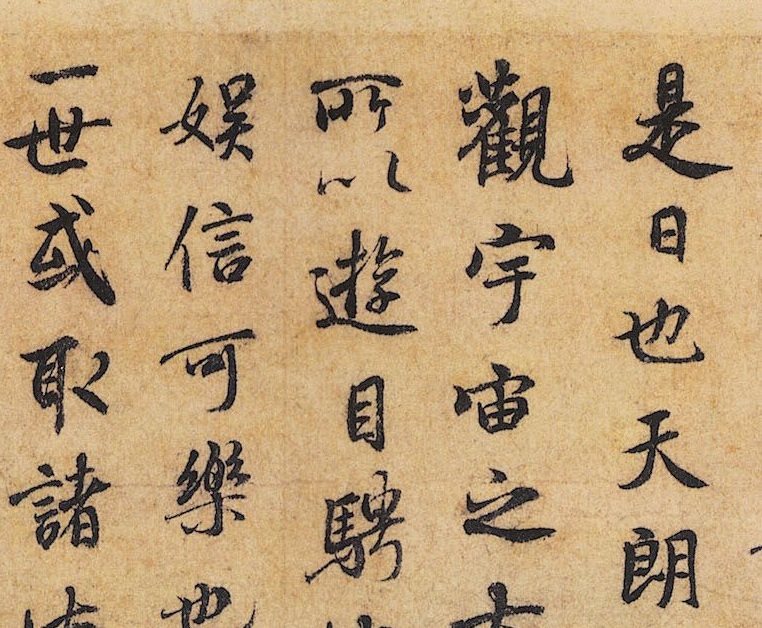 是日也天朗
觀宇宙之
所以遊目騁
娛信可樂也
一世或取諸